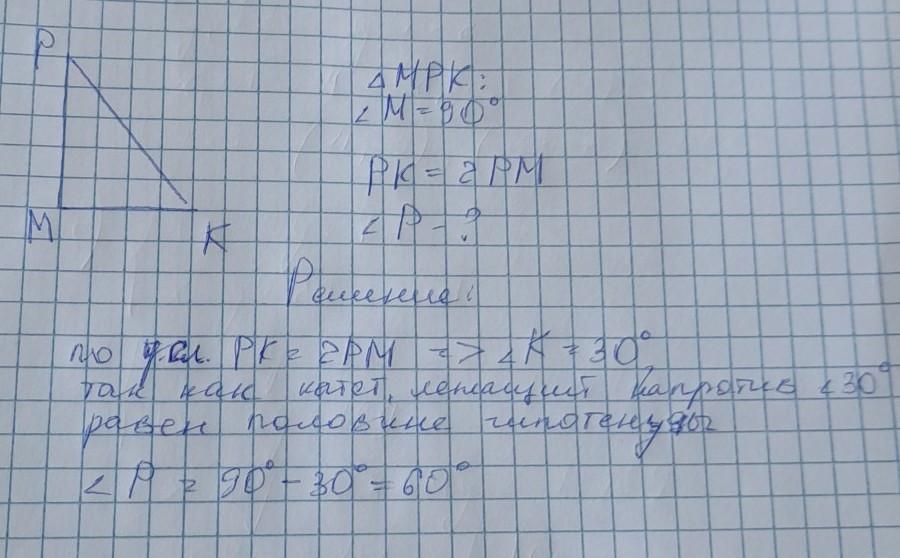 P
M
K
△MPK:
∠M=90°
PK = 2PM
∠P - ?
Решение:
по усл. PK = 2PM => ∠K = 30°
так как катет, лежащий напротив ∠30°
равен половине гипотенузы
∠P = 90° - 30° = 60°